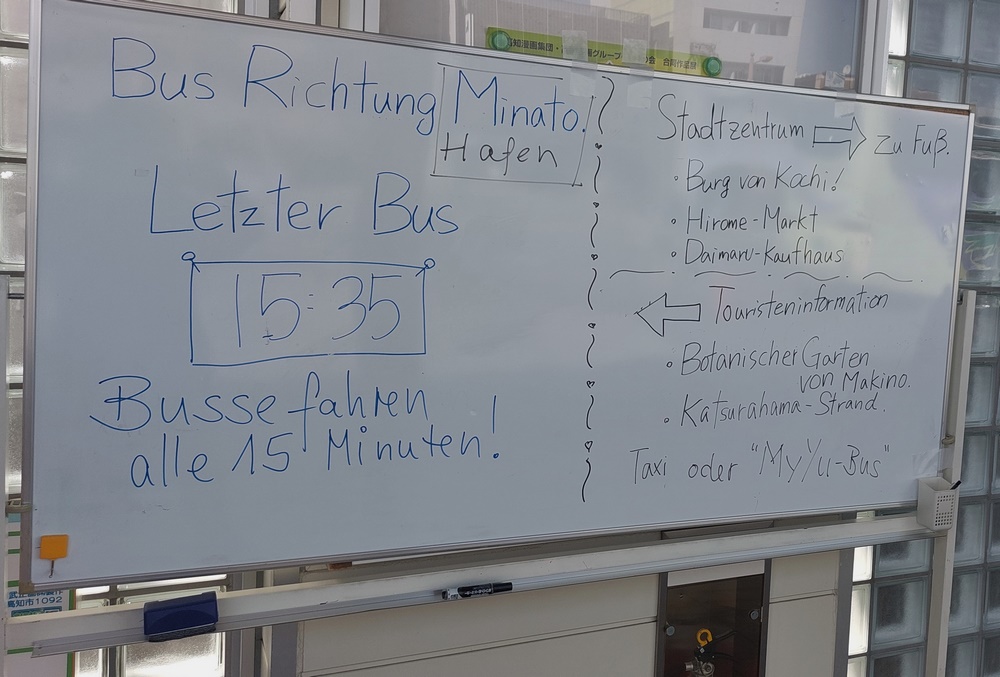 高知漫画集団・
画グループ
の会 合同作品展
Bus Richtung Minato.
Hafen
Letzter Bus
15:35
Busse fahren
alle 15 Minuten!
Stadtzentrum ⇒ zu Fuß.
• Burg von Kochi!
• Hirome-Markt
• Daimaru-Kaufhaus
⇐ Touristeninformation
• Botanischer Garten
von Makino.
• Katsurahama-Strand.
Taxi oder "MyYu-Bus"
高知市1092